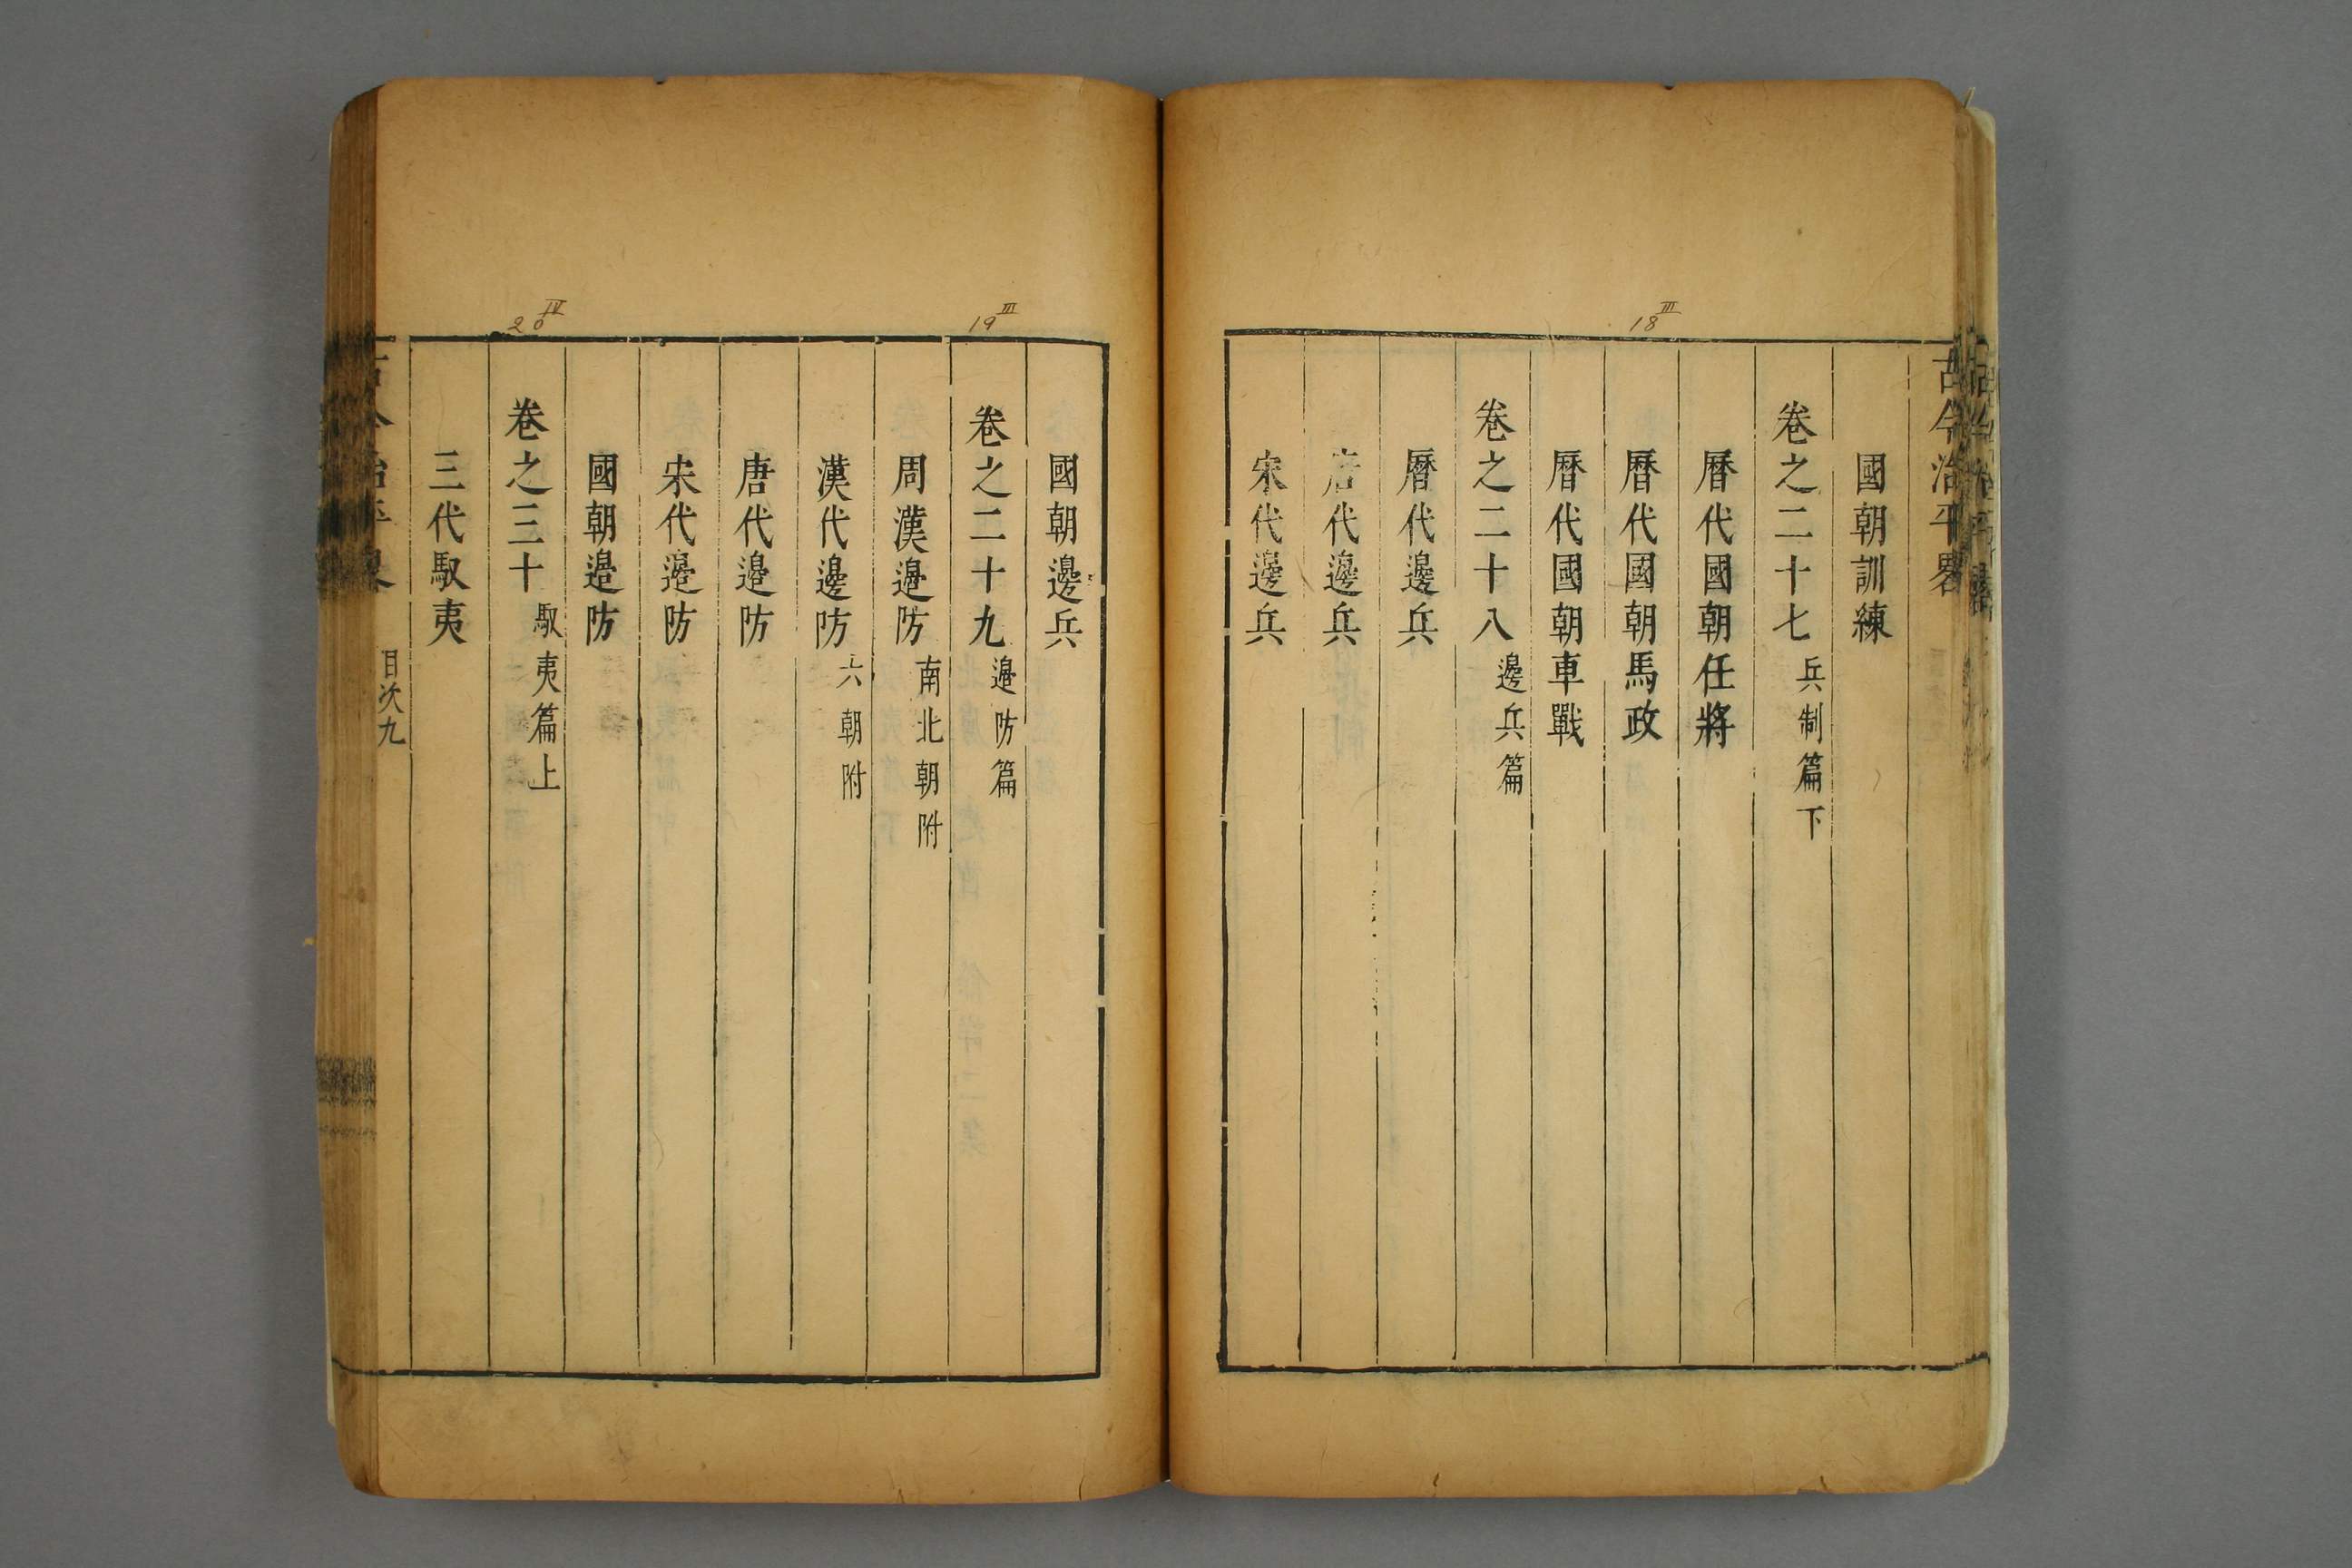 古今治平畧
國朝訓練
卷之二十七 兵制篇下
曆代國朝任將
曆代國朝馬政
曆代國朝車戰
卷之二十八 邊兵篇
曆代邊兵
唐代邊兵
宋代邊兵
18 III
國朝邊兵
卷之二十九 邊防篇
周漢邊防 南北朝附
漢代邊防 六朝附
唐代邊防
宋代邊防
國朝邊防
卷之三十 馭夷篇上
三代馭夷
目次九
19 III
20 IV